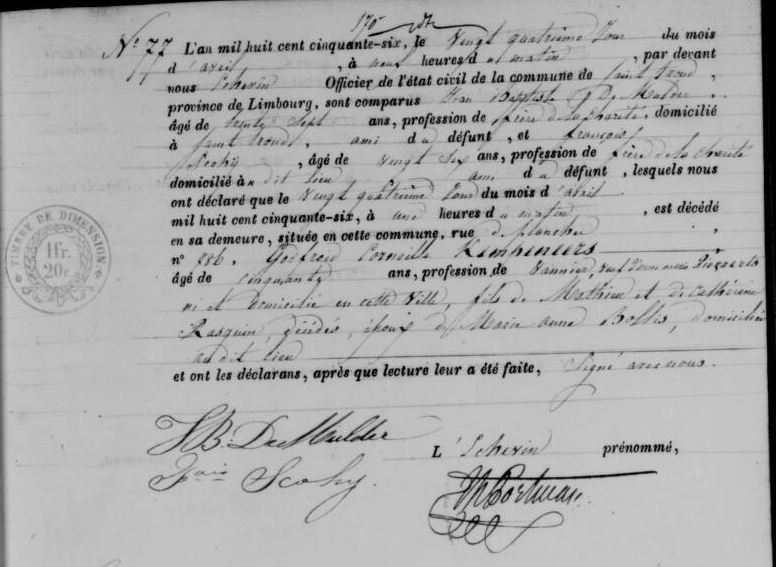 N° 77 L'an mil huit cent cinquante-six, le vingt quatrième Jour du mois
d'avril, à neuf heures du matin, par devant
nous Echevin Officier de l'état civil de la commune de Saint Trond,
province de Limbourg, sont comparus Jean Baptiste De Mulder
âgé de trente Sept ans, profession de frère de la charité, domicilié
à Saint trond, ami du défunt, et françois
Scohy, âgé de vingt Six ans, profession de frère de la charité
domicilié au dit lieu, ami du défunt, lesquels nous
ont déclaré que le vingt quatrième Jour du mois d'avril
mil huit cent cinquante-six, à une heures du matin, est décédé
en sa demeure, située en cette commune, rue de plancher
n° 886, Godfroid Corneille Kempeneers
âgé de cinquante ans, profession de Vannier, veuf
né et domicilié en cette Ville, fils de Mathieu et de Cathérine
Rasquin, décédés, époux de Marie anne Bollis, domiciliée
au dit lieu
et ont les déclarans, après que lecture leur a été faite, Signé avec nous.
JB. De Mulder
L'Echevin prénommé,
Scohy.
TIMBRE DE DIMENSION
1fr.
20c.